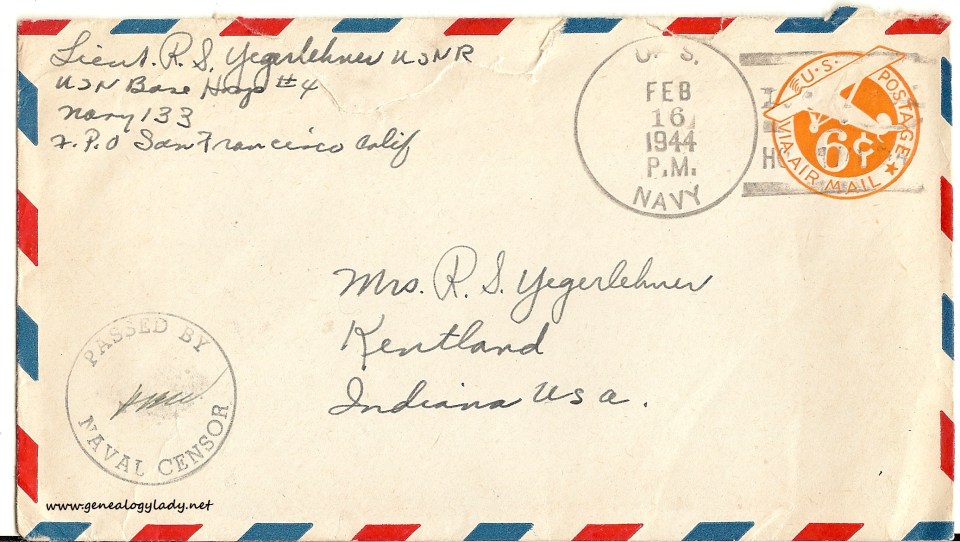 Lieut. R. S. Yegerlehner USNR
USN Base Hosp #4
Navy 133
F.P.O San Francisco Calif
U. S.
FEB
16
1944
P.M.
NAVY
U.S. POSTAGE
6¢
VIA AIR MAIL
Mrs. R. S. Yegerlehner
Kentland
Indiana USA.
PASSED BY
NAVAL CENSOR
www.genealogylady.net